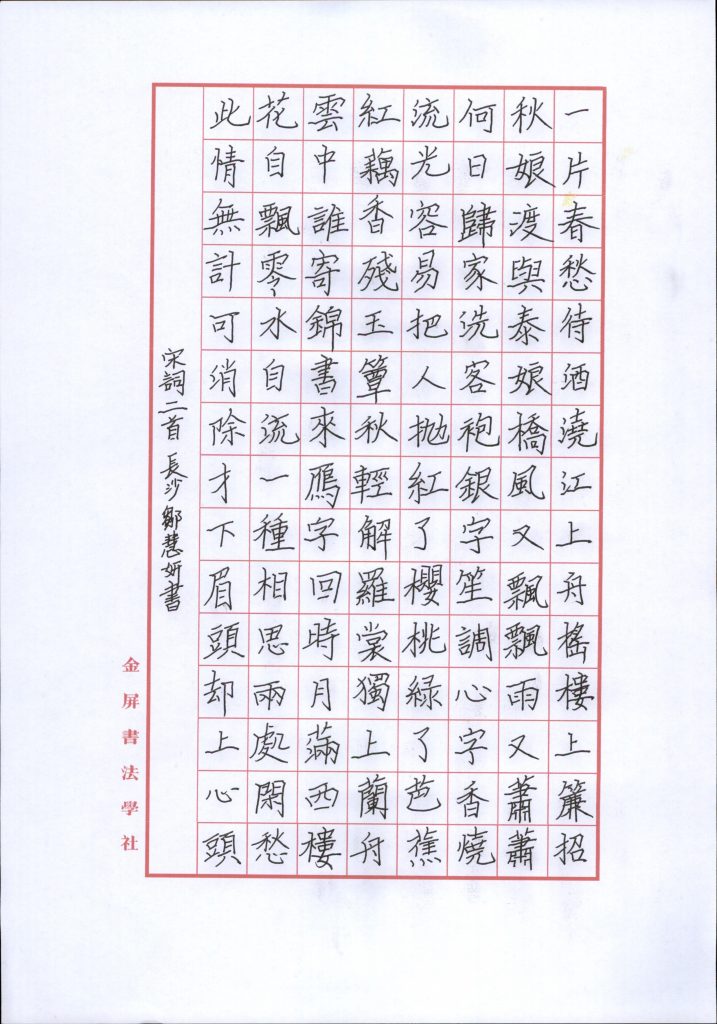 一片春愁待酒澆江上舟搖樓上簾招
秋娘渡與泰娘橋風又飄飄雨又蕭蕭
何日歸家洗客袍銀字笙調心字香燒
流光容易把人拋紅了櫻桃綠了芭蕉
紅藕香殘玉簟秋輕解羅裳獨上蘭舟
雲中誰寄錦書來鴈字回時月滿西樓
花自飄零水自流一種相思兩處閑愁
此情無計可消除才下眉頭却上心頭
宋詞二首 長沙鄒慧妍書
金屏書法學社